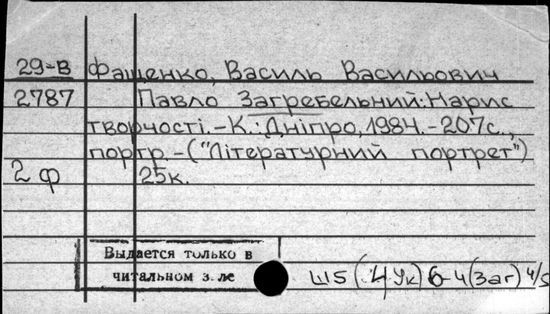 29-в Фащенко, Василь Васильович
2787 Павло Загребельний: Нарис
творчості.-К.: Дніпро, 1984.-207с.,
портр.-("Літературний портрет")
2 ф 25к.
Выдается только в
читальном з ле
Ш5(4Ук)6-4(Заг) 4/5